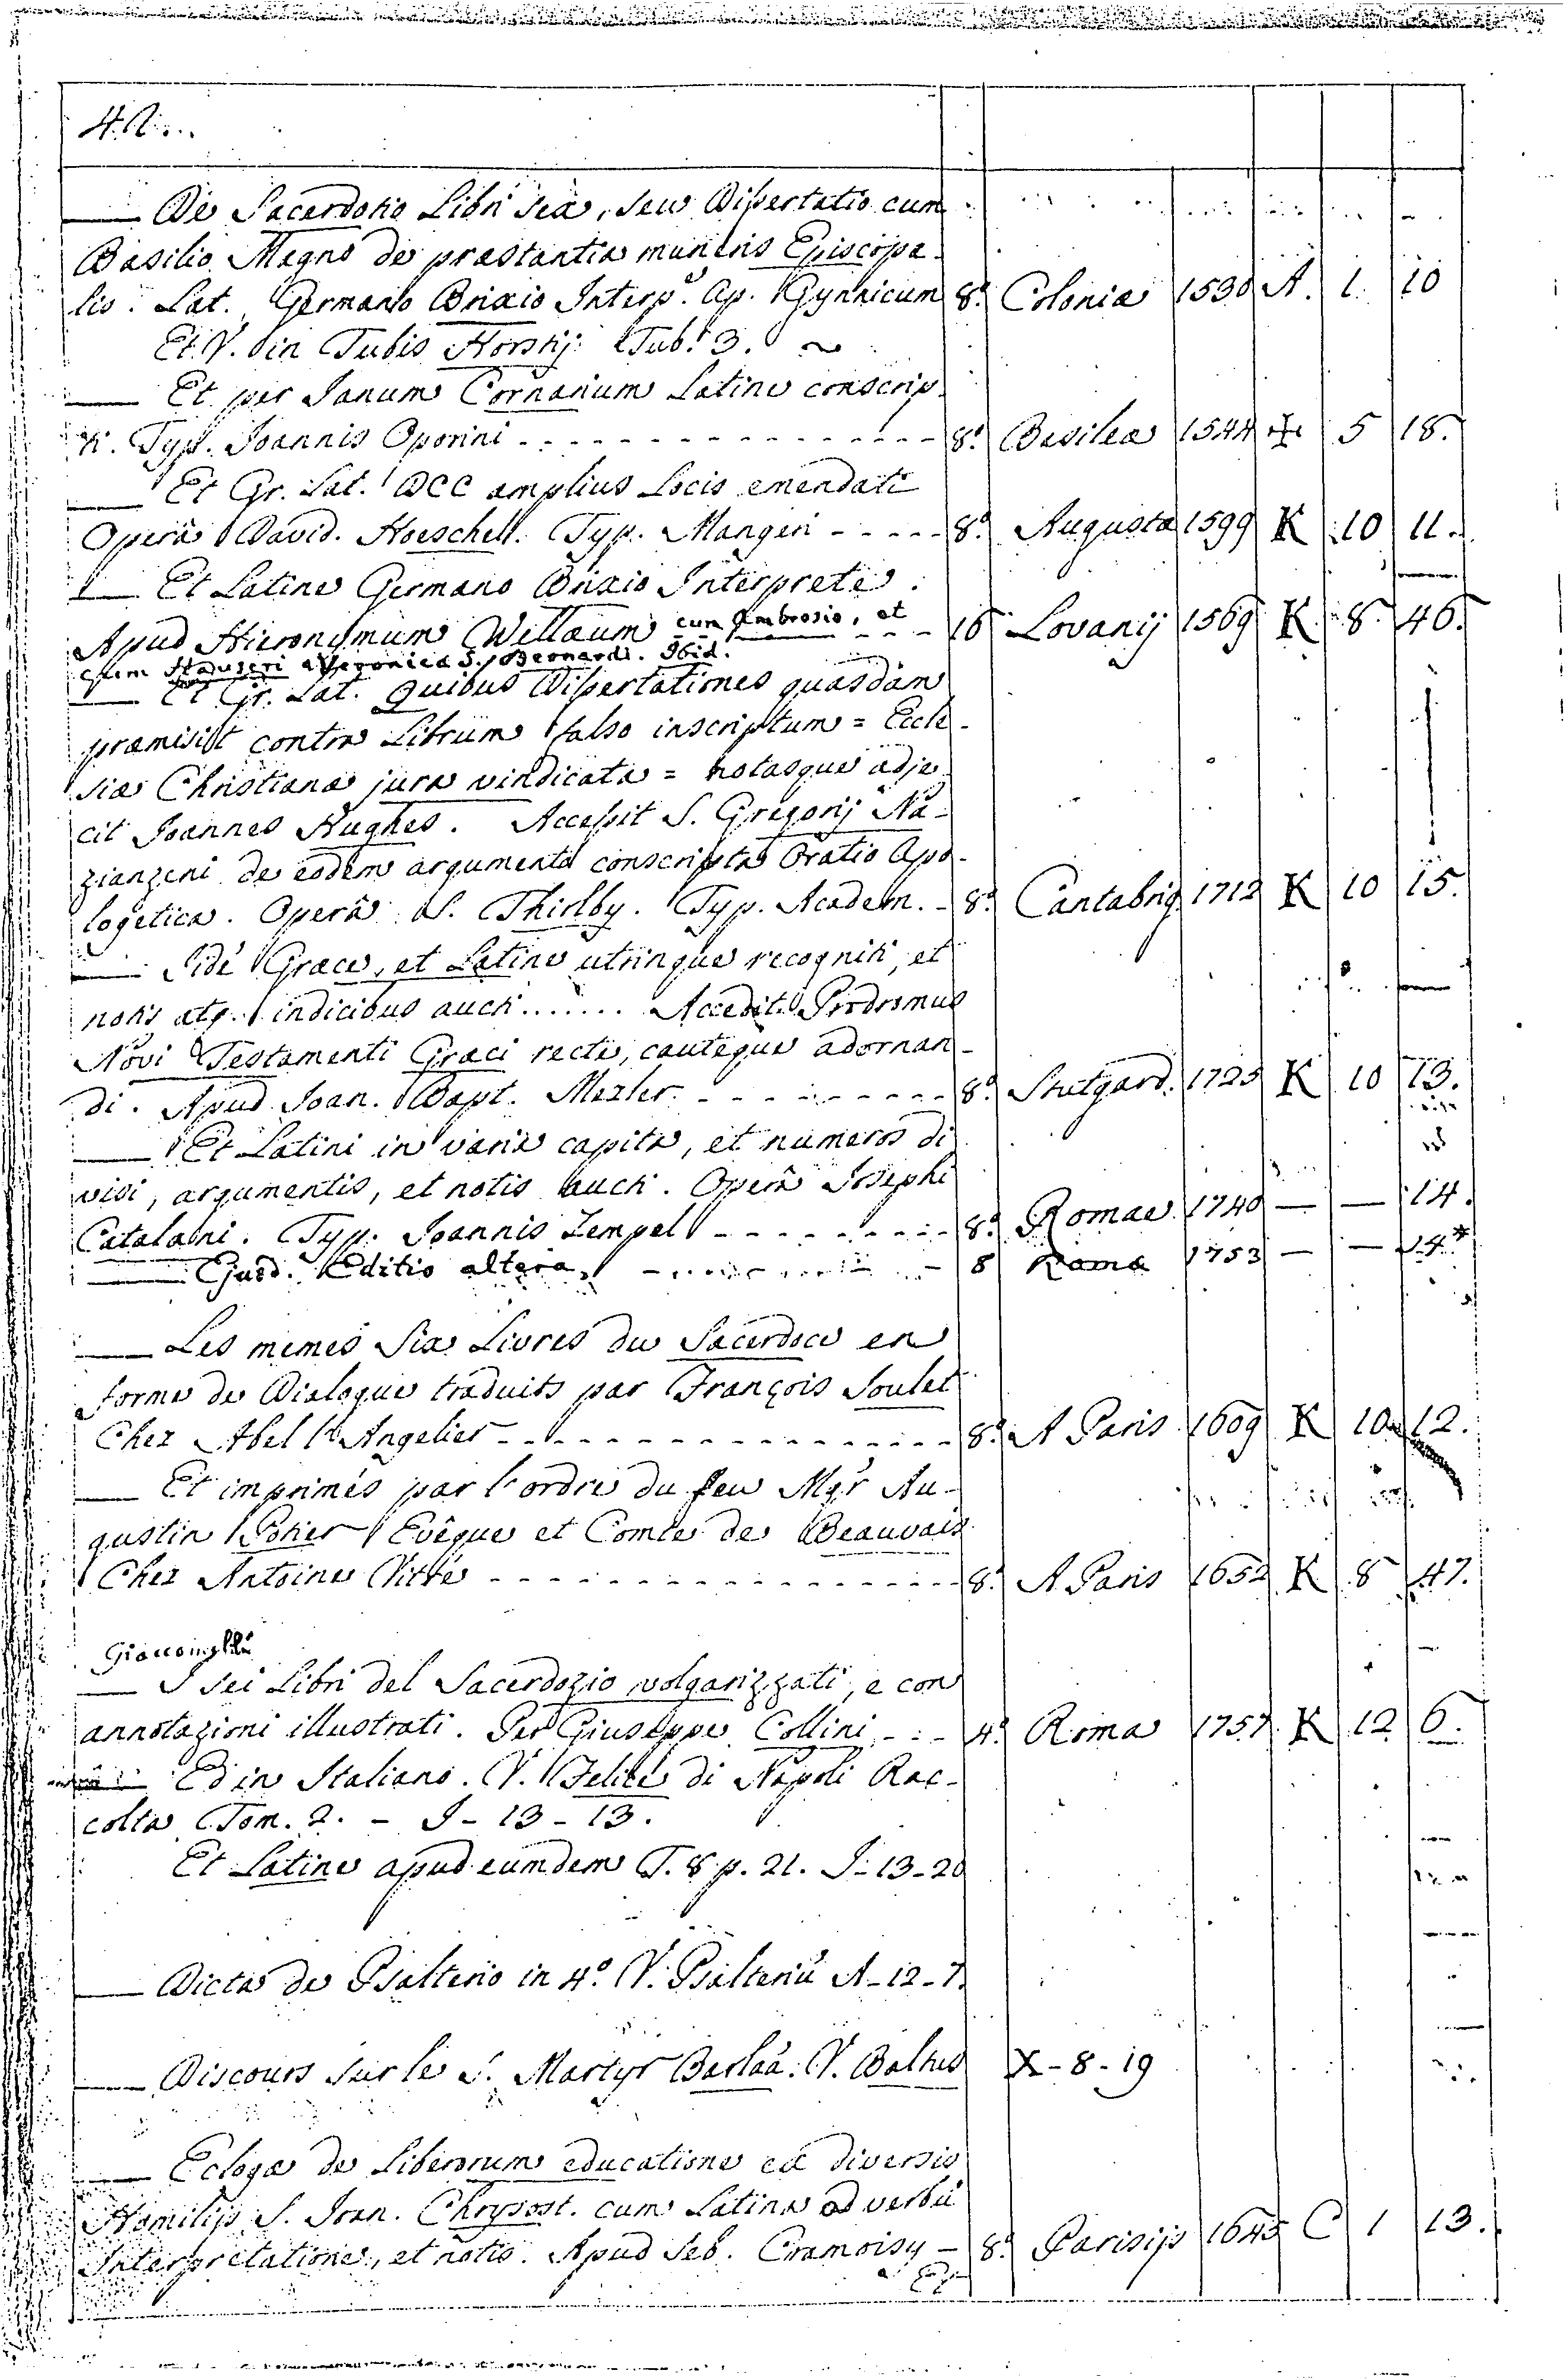 De Sacerdotio Libri Sex, seu Dissertatio cum
Basilio Magno de præstantia muneris Episcopa-
lis. Lat. Germano Brixio Interp.e Ap. Gymnicum 8.º Coloniæ 1530 A. 1. 10
Et V. in Tubis Horstij Tub. 3.
Et per Janum Cornarium Latine conscrip-
ti. Typ. Joannis Oporini - - - 8.º Basileæ 1544 ✠ 5 18.
Et Gr. Lat. DCC amplius Locis emendati
Operâ David. Hoeschell. Typ. Mangeri - - - 8.º Augustæ 1599 K 10 11.
Et Latine Germano Brixio Interprete.
Apud Hieronymum Wellæum cum Ambrosio, et - - - 16 Lovanij 1569 K 8. 46.
cum Hauseri Veronica S. Bernardi. Ibid.
Et Gr. Lat. Quibus Dissertationes quasdam
præmisit contra Librum falso inscriptum = Eccle-
siæ Christianæ jura vindicata = notasque adje-
cit Joannes Hughes. Accessit S. Gregorij Na-
zianzeni de eodem argumento conscripta Oratio Apo-
logetica. Operâ S. Thirlby. Typ. Academ. - 8.º Cantabrig. 1712 K 10 15.
Iidẽ Græce, et Latine utrinque recogniti, et
notis atq. indicibus aucti ....... Accedit Prodromus
Novi Testamenti Græci recte, cauteque adornan-
di. Apud Joan. Bapt. Mezler - - - 8.º Stutgard. 1725 K 10 13.
Et Latini in varia capita, et numeros di
visi, argumentis, et notis aucti. Operâ Josephi
Catalani. Typ. Joannis Zempel - - - 8.º Romae 1740 — — 14.
Ejusd. Editio altera - - - 8 Romæ 1753 — — 14*
Les memes Six Livres du Sacerdoce en
forme de Dialogue traduits par François Joulet
Chez Abel l'Angelier - - - 8.º A Paris 1609 K 10 12.
Et imprimés par l'ordre du feu Mgr Au-
gustin Potier Evêque et Comte de Beauvais
Chez Antoine Vitré - - - 8.º A Paris 1652 K 8 47.
Giacomelli
I sei Libri del Sacerdozio volgarizzati, e con
annotazioni illustrati. Per Giuseppe Collini - - - 4.º Roma 1757 K 12 6.
Ed in Italiano. V. Felice di Napoli Rac-
colta Tom. 2. - I - 13 - 13.
Et Latine apud eumdem T. 8 p. 21. I - 13 - 20
Dicta de Psalterio in 4.º V. Psalteriũ A - 12 - 7.
Discours sur le S. Martyr Barlaã. V. Baltus X - 8 - 19
Eclogæ de Liberorum educatione ex diversis
Homilijs S. Joan. Chrysost. cum Latina ad verbũ
Interpretatione, et notis. Apud Seb. Cramoisy - 8.º Parisijs 1645 C 1 13.